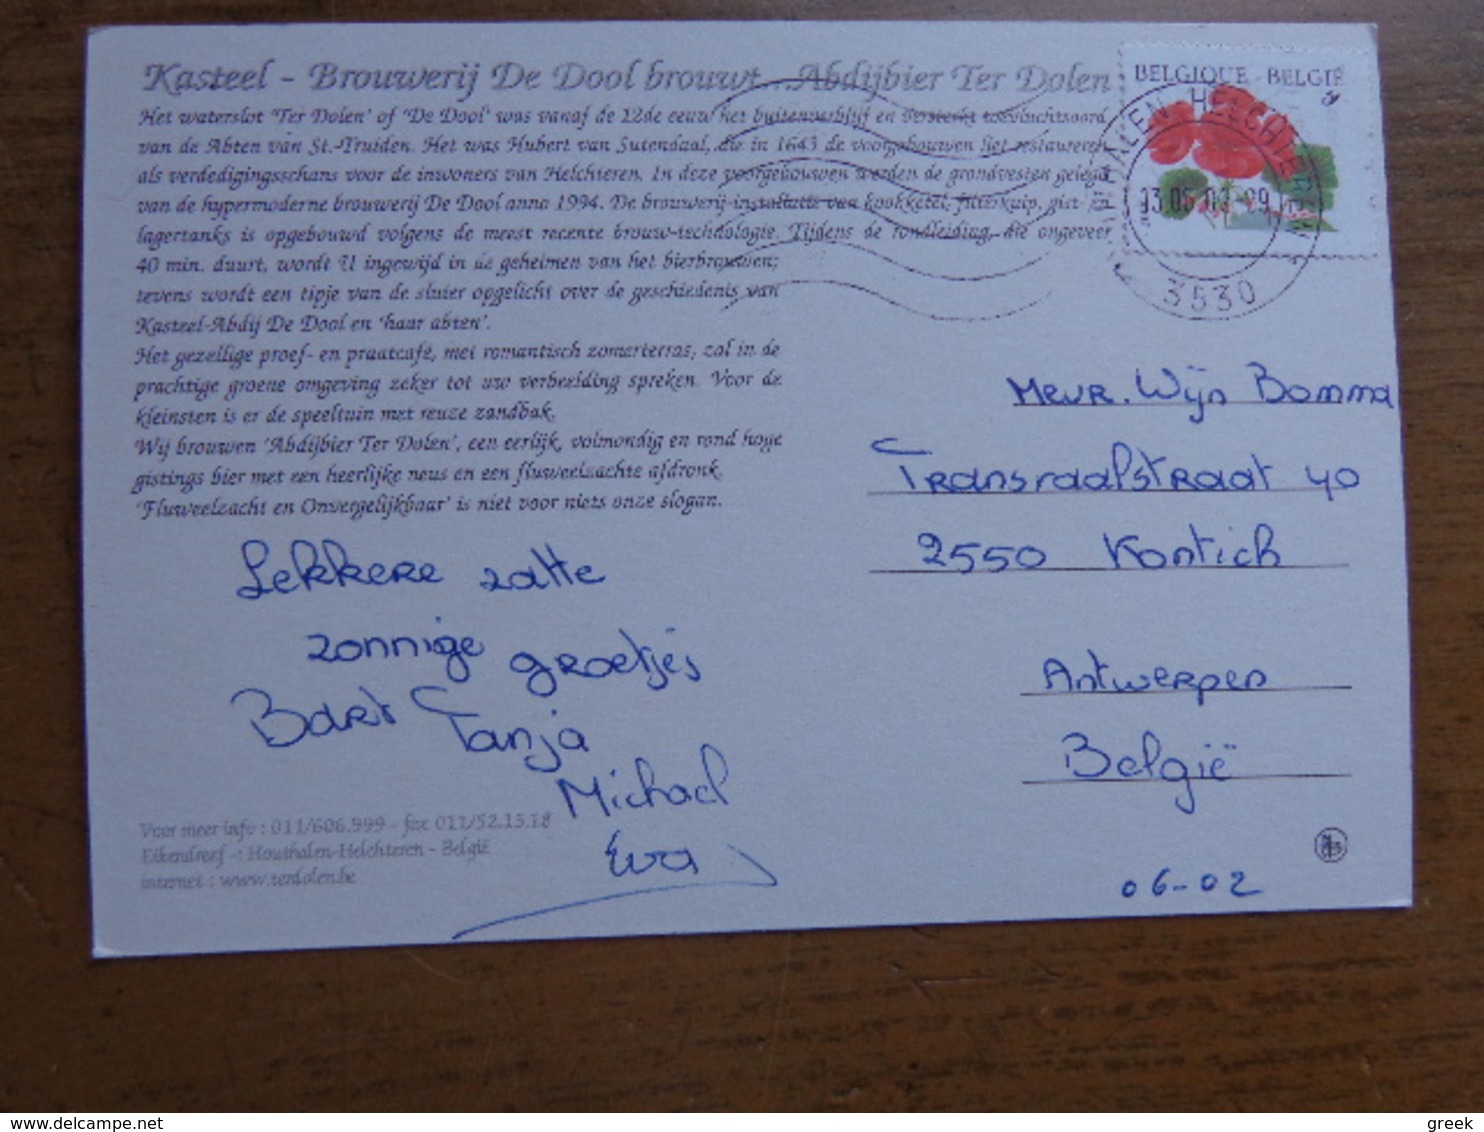 Kasteel - Brouwerij De Dool brouwt...Abdijbier Ter Dolen
Het waterslot 'Ter Dolen' of 'De Dool' was vanaf de 12de eeuw het buitenverblijf en versterkt toevluchtsoord
van de Abten van St.-Truiden. Het was Hubert van Sutendaal, die in 1643 de voorgebouwen liet restaureren
als verdedigingsschans voor de inwoners van Helchteren. In deze voorgebouwen werden de grondvesten gelegd
van de hypermoderne brouwerij De Dool anno 1994. De brouwerij-installatie van kookketel, filterkuip, gist- en
lagertanks is opgebouwd volgens de meest recente brouw-technologie. Tijdens de rondleiding, die ongeveer
40 min. duurt, wordt U ingewijd in de geheimen van het bierbrouwen;
tevens wordt een tipje van de sluier opgelicht over de geschiedenis van
Kasteel-Abdij De Dool en 'haar abten'.
Het gezellige proef- en praatcafé, met romantisch zomerterras, zal in de
prachtige groene omgeving zeker tot uw verbeelding spreken. Voor de
kleinsten is er de speeltuin met reuze zandbak.
Wij brouwen 'Abdijbier Ter Dolen', een eerlijk, volmondig en rond hoge
gistings bier met een heerlijke neus en een fluweelzachte afdronk.
'Fluweelzacht en Onvergelijkbaar' is niet voor niets onze slogan.
Lekkere zatte
zonnige groetjes
Bart Tanja
Michael
Eva
Voor meer info : 011/606.999 - fax 011/52.15.18
Eikendreef - Houthalen-Helchteren - België
internet : www.terdolen.be
BELGIQUE - BELGIË
HELCHTEREN
3530
Mevr. Wijn Bomma
Transvaalstraat 40
2550 Kontich
Antwerpen
België
06-02
greek